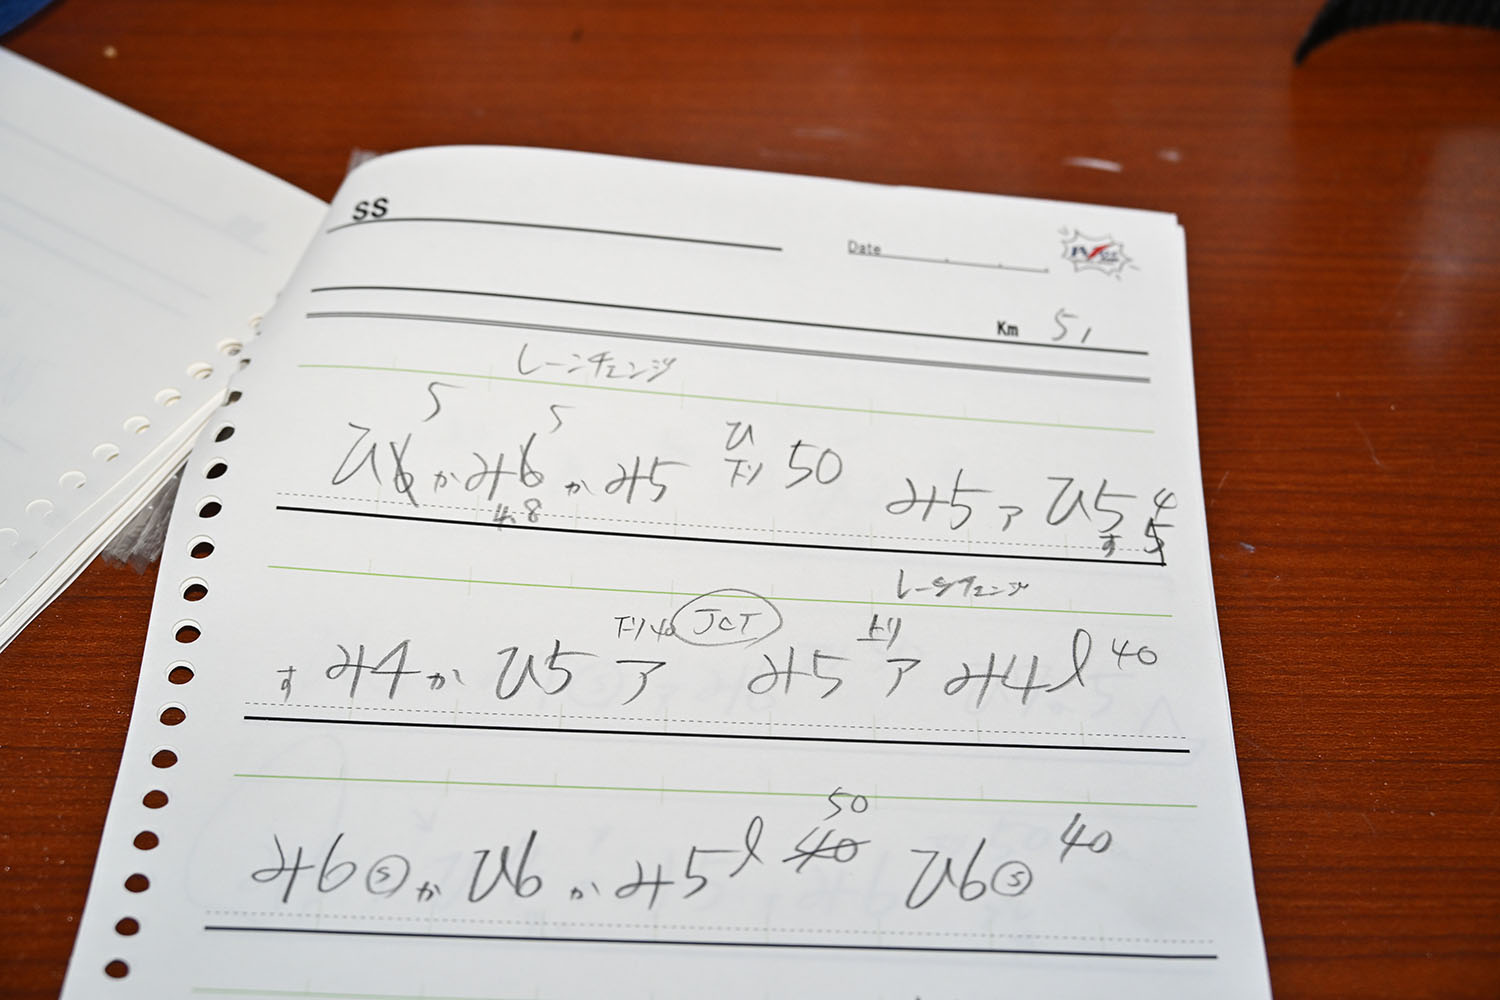 SS
Date
Km 51
レーンチェンジ
5 5 ひ
ひ6 か み6 か み5 下リ 50 み5 ア ひ5 4
4.8 す 5
レーンチェンジ
下リ40 JCT 上リ
す み4 か ひ5 ア み5 ア み4 l 40
50
み6 ⓢ か ひ6 か み5 l 40 ひ6 ⓢ 40